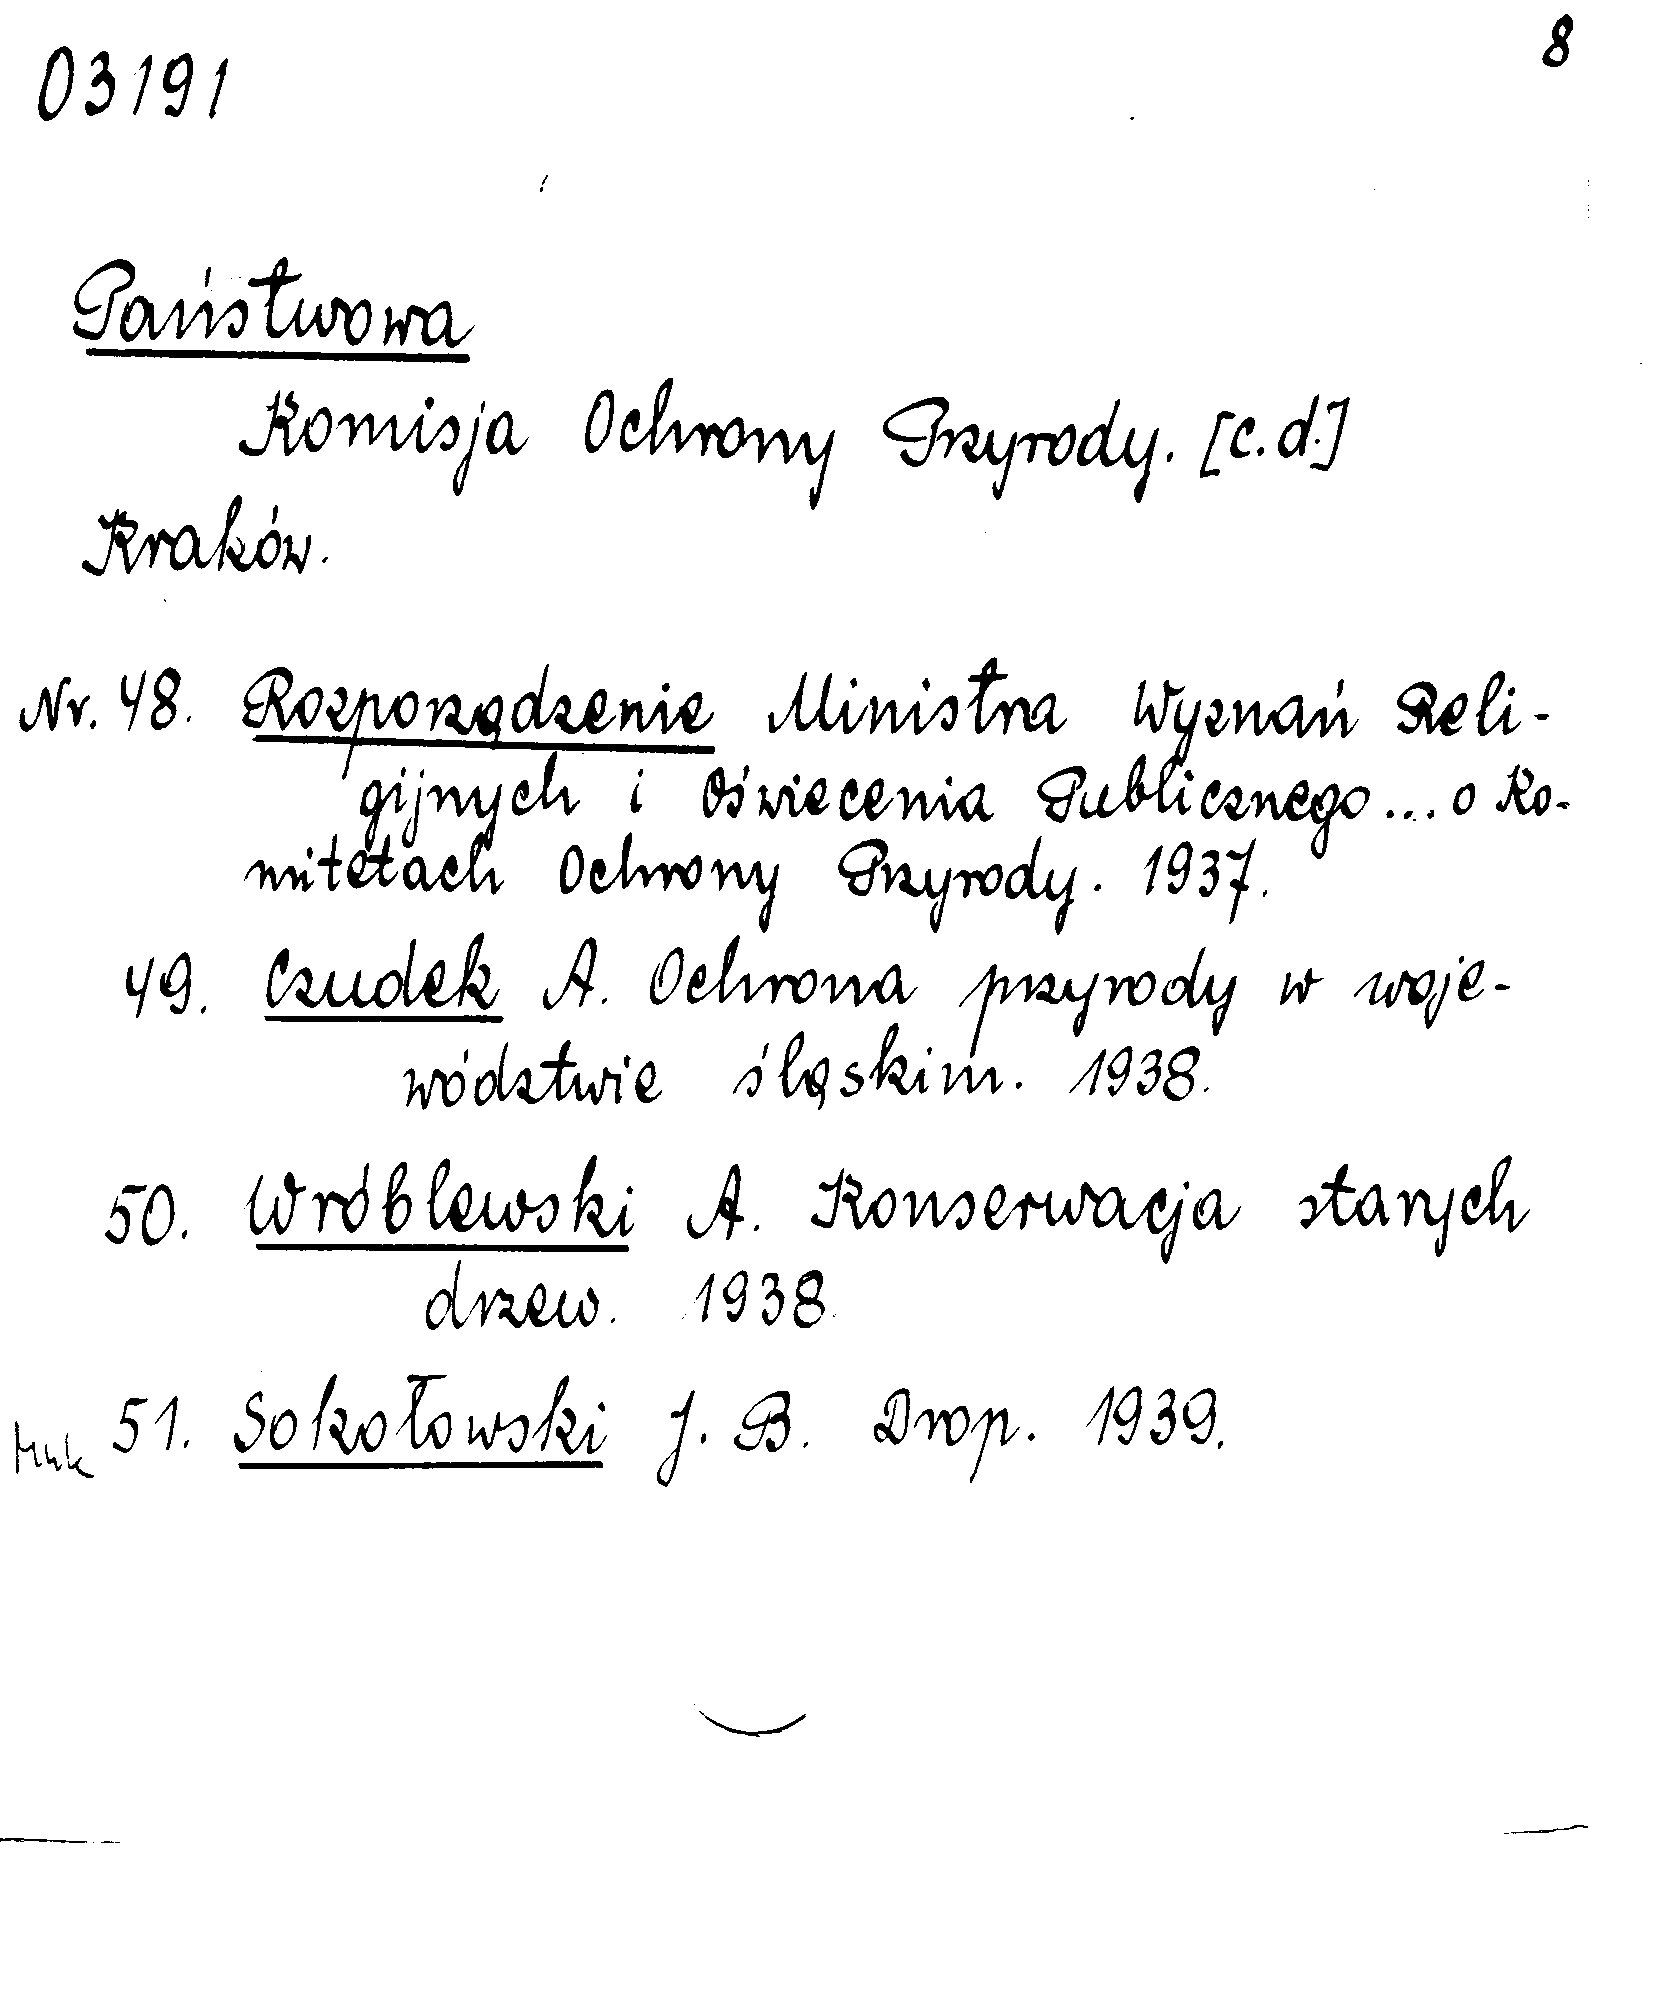 8
03191
Państwowa
Komisja Ochrony Przyrody. [c.d.]
Kraków.
Nr. 48. Rozporządzenie Ministra Wyznań Reli-
gijnych i Oświecenia Publicznego... o Ko-
mitetach Ochrony Przyrody. 1937.
49. Czudek A. Ochrona przyrody w woje-
wództwie śląskim. 1938.
50. Wróblewski A. Konserwacja starych
drzew. 1938.
51. Sokołowski J. B. Drop. 1939.